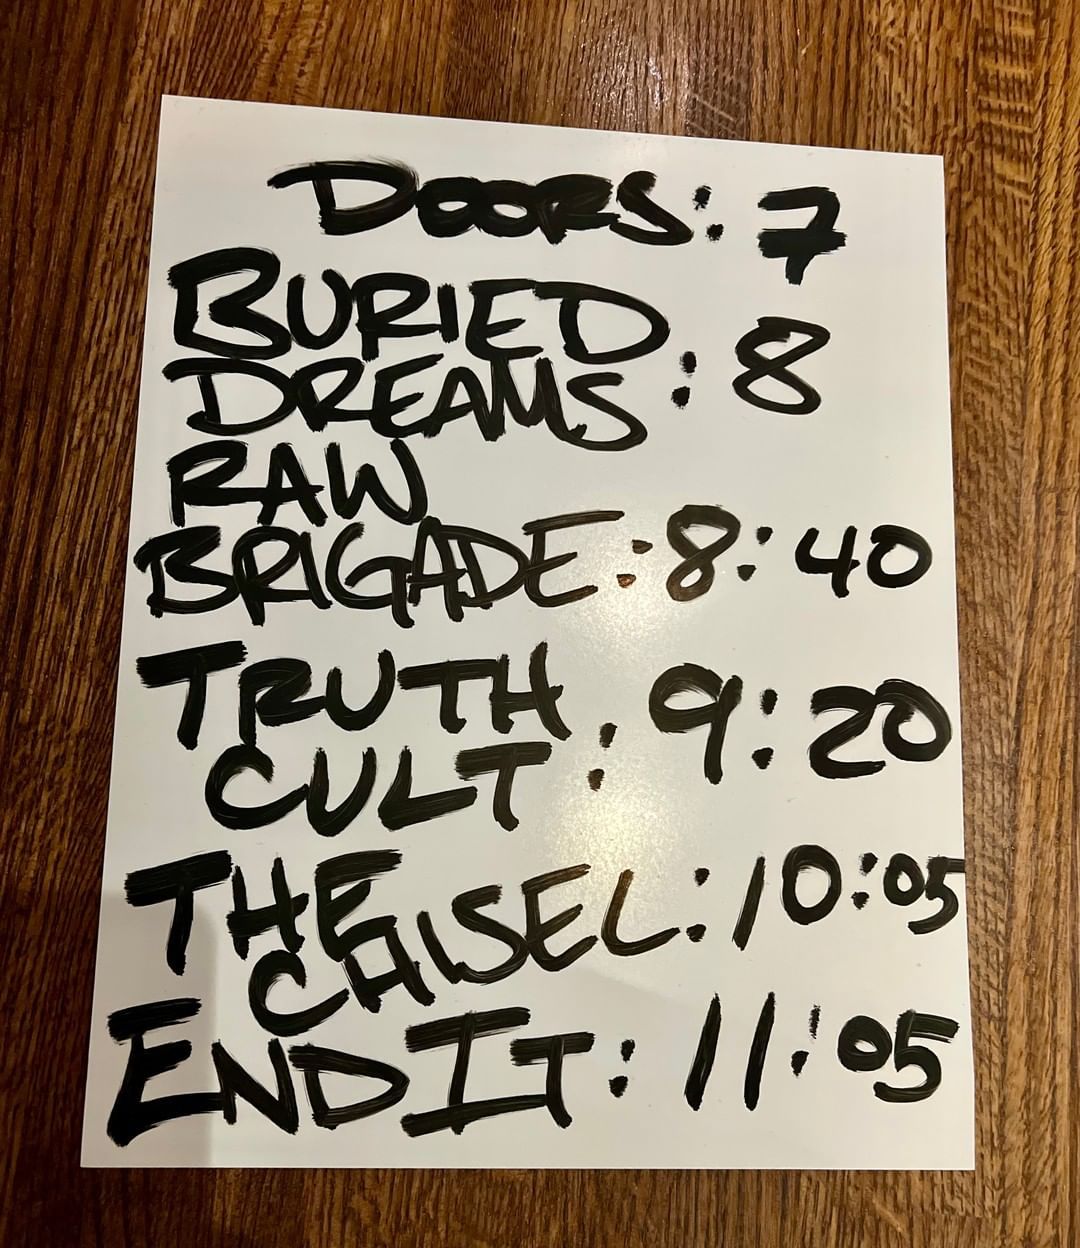 DOORS: 7
BURIED
DREAMS : 8
RAW
BRIGADE : 8:40
TRUTH
CULT : 9:20
THE
CHISEL : 10:05
END IT : 11:05